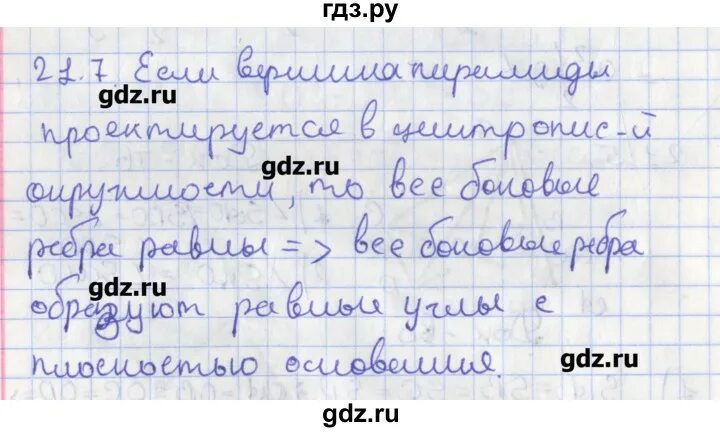 гдз.ру
21.7 Если вершина пирамиды
gdz.ru
проектируется в центр опис-й
gdz.ru
окружности, то все боковые
ребра равны => все боковые ребра
gdz.ru
образуют равные углы с
плоскостью основания.
gdz.ru
gdz.ru